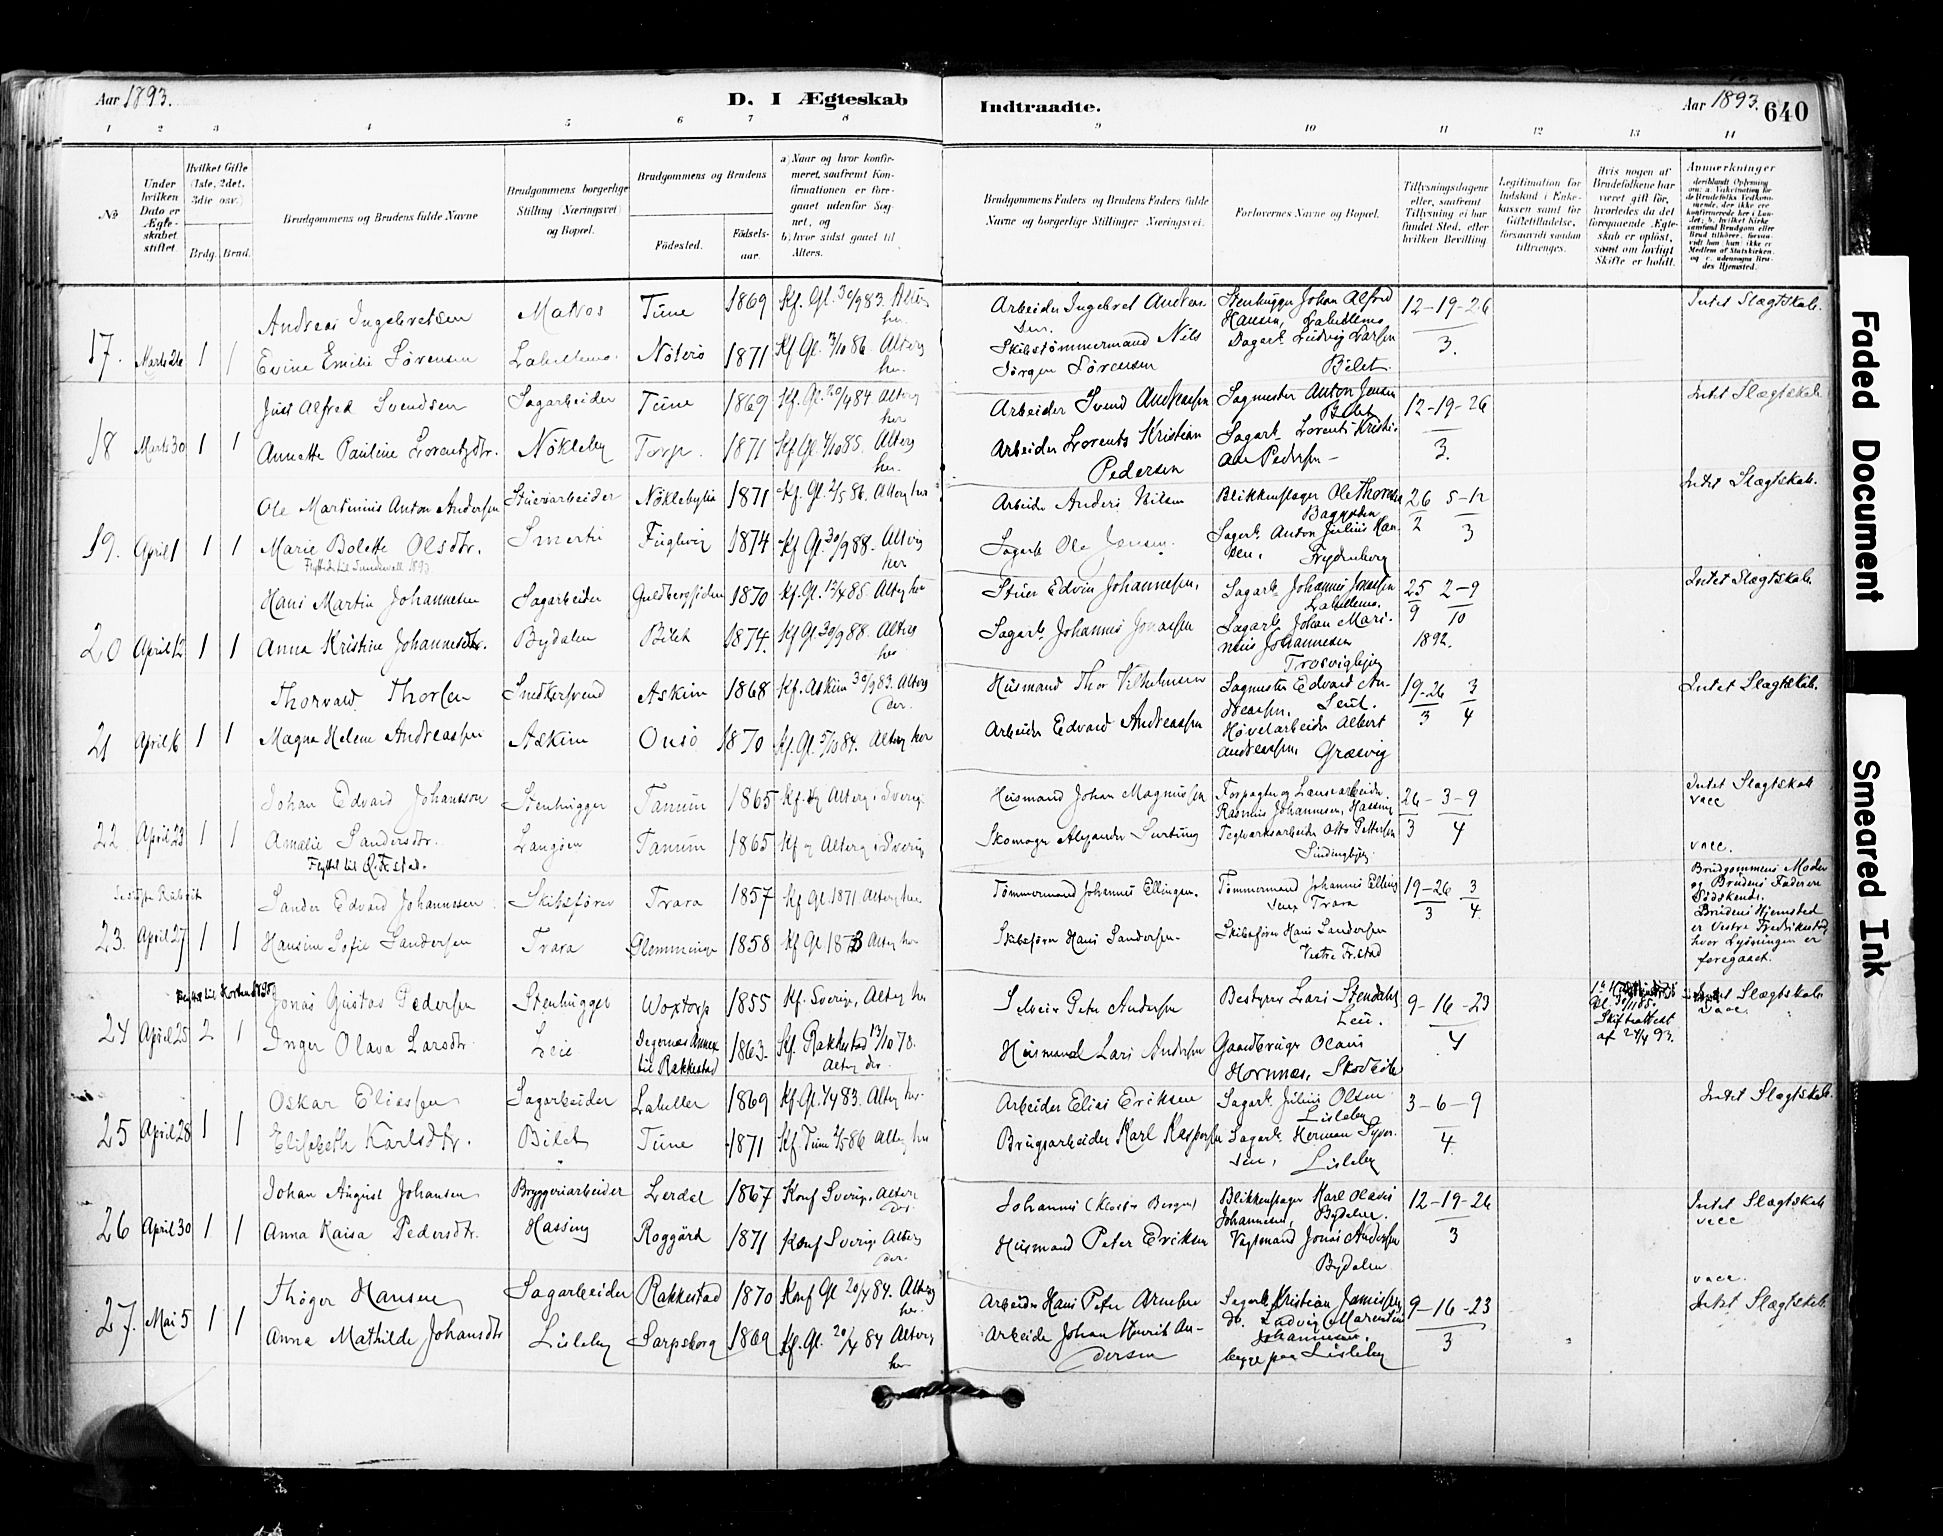 Aar 1893.
D. I Ægteskab
Indtraadte.
Aar 1893.
640
1 2 3 4 5 6 7 8 9 10 11 12 13 14
No
Under hvilken Dato er Ægteskabet stiftet.
Hvilket Gifte (1ste, 2det, 3die osv.)
Brdg. Brud.
Brudgommens og Brudens fulde Navne
Brudgommens borgerlige Stilling (Næringsvei) og Bopæl.
Brudgommens og Brudens
Fødested. Fødselsaar.
a) Naar og hvor konfirmeret, saafremt Konfirmationen er foregaaet udenfor Sognet, og
b) hvor sidst gaaet til Alters.
Brudgommens Faders og Brudens Faders fulde Navne og borgerlige Stillinger Næringsvei.
Forlovernes Navne og Bopæl.
Tillysningsdagene eller, saafremt Tillysning ei har fundet Sted, efter hvilken Bevilling
Legitimation for Indskud i Enkekassen samt for Giftetilladelse, forsaavidt saadan tiltrænges.
Hvis nogen af Brudefolkene har været gift før, hvorledes da det foregaaende Ægteskab er opløst, samt om lovligt Skifte er holdt.
Anmærkninger
17. Marts 26 1 1
Andreas Ingebretsen Matros Tune 1869 Kf. Gl. 30/9 83. Alterg her.
Evine Emilie Sørensen Labellemo. Nøterø 1871 Kf Gl. 3/10 86. Alterg her.
Arbeider Ingebret Andersen.
Skibstømmermand Nils Jørgen Sørensen
Stenhugger Johan Alfred Hansen, Labellemo
Dagarb. Ludvig Larsen Bilet.
12-19-26
3.
Intet Slægtskab.
18 Marts 30 1 1
Just Alfred Svendsen Sagarbeider Tune 1869 Kf. Gl. 20/4 84 Alterg her
Annette Pauline Lorentzdtr. Nøkleby Torp. 1871 Kf Gl. 4/10 85. Alterg her.
Arbeider Svend Andreassen
Arbeider Lorents Kristian Pedersen
Sagmester Anton Jensen Bilet
Sagarb. Lorents Kristian Pedersen
12-19-26
3.
Intet Slægtskab
19. April 1 1 1
Ole Martinius Anton Andersen Stuerarbeider Nøkleby 1871 Kf. Gl. 2/5 86. Alterg her
Marie Bolette Olsdtr. Smertu Fuglevig 1874 Kf Gl. 30/9 88. Alterg her
Flyttede til Sundsvall 1893
Arbeider Anders Nilsen
Sagarb Ole Jensen.
Blikkenslager Ole Thorsen
Sagarb. Anton Julius Hansen. Frydenberg
26 5-12
2 3
Intet Slægtskab.
20 April 12 1 1
Hans Martin Johannesen Sagarbeider Guldbergsiden 1870 Kf. Gl. 12/4 85. Alterg her
Anna Kristine Johannesdtr. Bydalen Bilet 1874. Kf Gl. 30/9 88. Alterg her
Stuer Edvin Johannesen,
Sagarb. Johannes Jonassen
Sagarb. Johannes Jonassen Labellemo.
Sagarb Johan Marinius Johannesen Trosvigbjerg
25 2-9
9 10
1892.
Intet Slægtskab.
21 April 16 1 1
Thorvald Thorsen Snedkersvend Askim 1868 Kf. Askim 30/9 83. Alterg der.
Magna Helene Andreassen Askim Onsø 1870 Kf. Gl. 5/10 84. Alterg her
Husmand Thor Vilhelmsen
Arbeider Edvard Andreassen
Sagmester Edvard Andreassen. Leie.
Høvelarbeider Albert Andreassen, Græsvig
19-26 3
3 4
Intet Slægtskab.
22 April 23 1 1
Johan Edvard Johansson Stenhugger Tanum 1865 Kf. og Alterg i Sverig.
Amalie Sandersdtr. Langøen Tanum 1865 Kf og Alterg i Sverig
Flyttet til Q. F.stad.
Husmand Johan Magnussen
Skomager Alexander
Forpagter og Lensearbeider Rasmus Johannesen, Hassing
Teglværksarbeider Otto Pettersen
26-3-9
3 4
Intet Slægtskab
vacc
vacc.
23. April 27 1 1
Sander Edvard Johannesen Skibsfører Trara 1857 Kf Gl. 1871 Alterg her
Hansine Sofie Sandersen Trara Glemminge 1858 Kf Gl 1873 Alterg her
Tømmermand Johannes Ellingsen.
Skibsfører Hans Sandersen.
Tømmermand Johannes Ellingsen Trara
Skibsfører Hans Sandersen Vestre Fr.stad
19-26 3
3 4
Brudgommens Moder og Brudens Fader er Sødskende.
Brudens Hjemsted er Vestre Fredrikstad hvor Lysningen er foregaaet.
24 April 25 2 1
Jonas Gustav Pedersen Stenhugger Woxtorp 1855 Kf. Sverige, Alterg her
Inger Olava Larsdtr. Leie Degernes Annex til Rakkestad 1863. Kf. Rakkestad 13/10 78. Alterg der.
Selveier Peter Andersen
Husmand Lars Andersen
Bestyrer Lars Stendahl Leie.
Gaardbruger Olaus Hornnes, Skodvik
9-16-23
4
Skifteattest af 24/4 93.
Intet Slægtskab.
vacc.
25 April 28 1 1
Oskar Eliassen Sagarbeider Labellen 1869 Kf. Gl. 1/4 83. Alterg her.
Elisabeth Karlsdtr. Bilet Tune 1871 Kf. Tune 2/5 86 Alterg her
Arbeider Elias Eriksen
Brugsarbeider Karl Kaspersen
Sagarb. Julius Olsen Lisleby
Sagarb. Herman Syversen, Lisleby
3-6-9
4.
Intet Slægtskab.
26 April 30 1 1
Johan August Johansen Bryggeriarbeider Lerdal 1867 Konf Sverige, Alterg der.
Anna Kaisa Pedersdtr. Hassing Roggård 1871 Konf Sverige Alterg der.
Johannes
Husmand Peter Eriksen
Blikkenslager Karl Olavus Johannesen, Bydalen.
Vagtmand Jonas Andersen Bydalen
12-19-26
3
Intet Slægtskab
vacc
vacc.
27. Mai 5 1 1
Thøger Hansen Sagarbeider Rakkestad 1870 Konf Gl 20/4 84. Alterg her.
Anna Mathilde Johansdtr Lisleby Sarpsborg 1869 Kf. Gl. 20/4 84 Alterg her
Arbeider Hans Peter Arnesen
Arbeider Johan Henrik Andersen
Sagarb. Kristian Jamissen,
do. Ludvig Marentius Johannesen.
begge paa Lisleby
9-16-23
3
Intet Slægtskab.
Faded Document
Smeared Ink